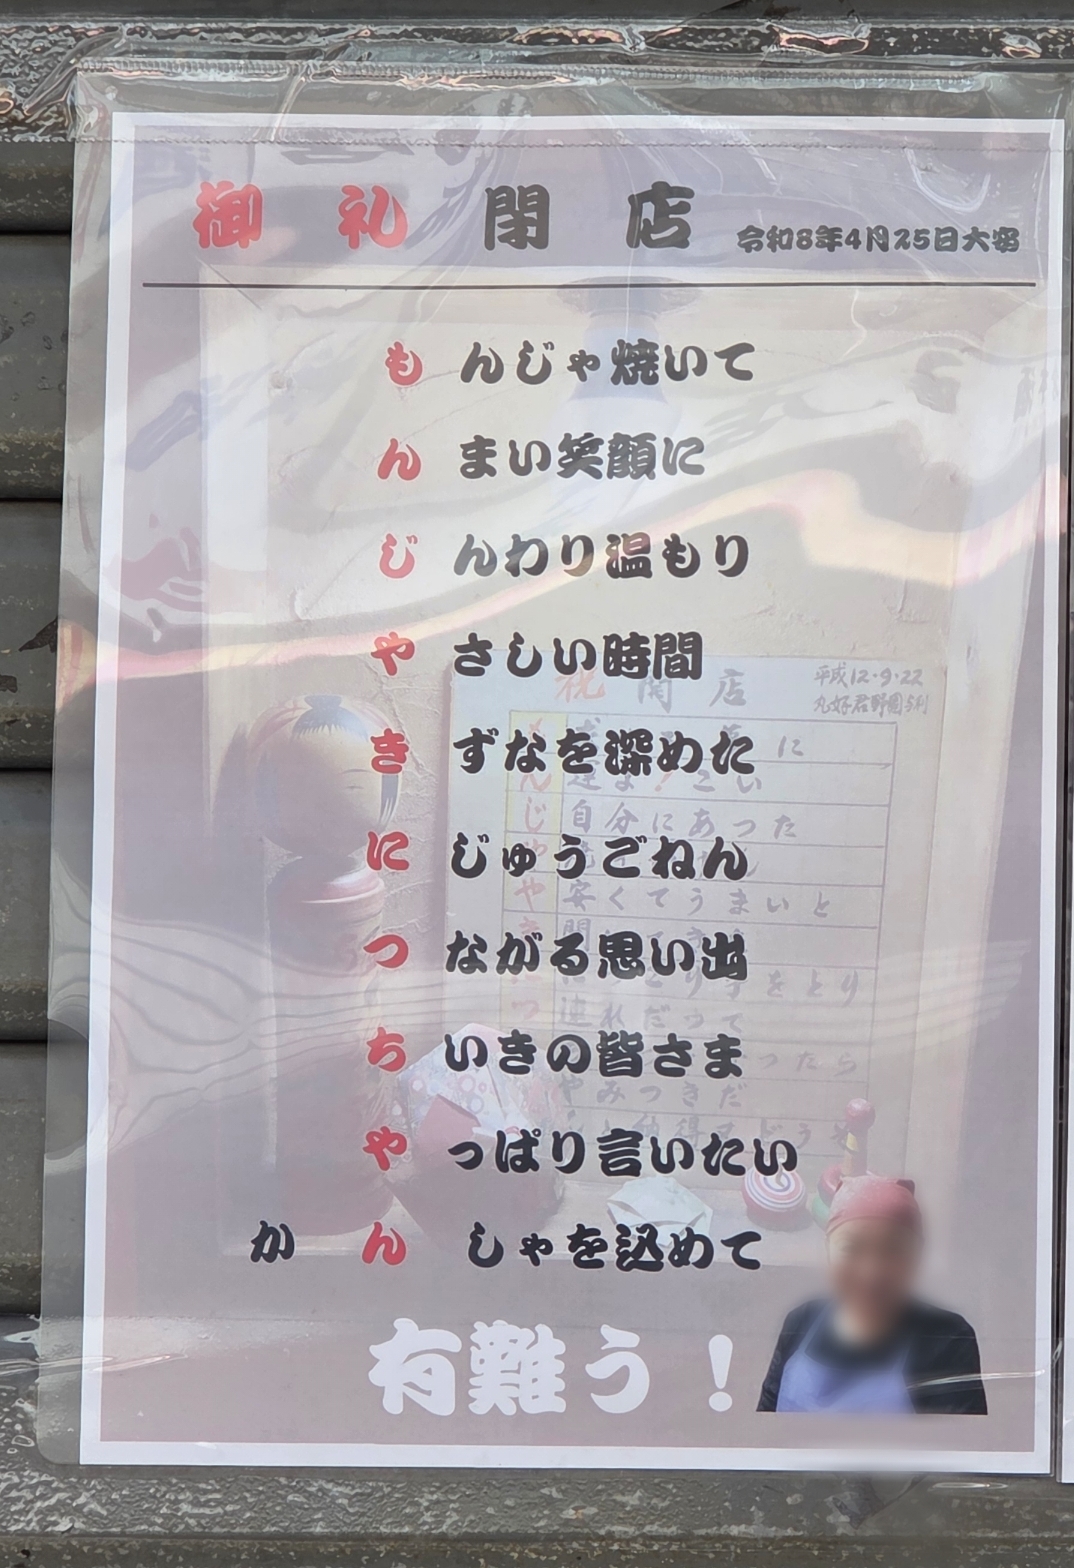 御礼 閉店 令和8年4月25日大安
もんじゃ焼いて
んまい笑顔に
じんわり温もり
やさしい時間
きずなを深めた
にじゅうごねん
つながる思い出
ちいきの皆さま
やっぱり言いたい
かんしゃを込めて
有難う！
祝 開店
平成12・9・22
に
じ 自分にあった
や 安くてうまいと
つ 連れだって
ったら
やみつきだ